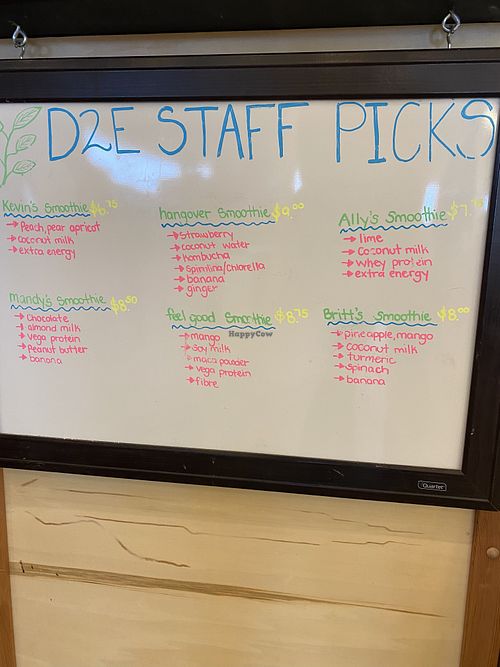 D2E STAFF PICKS
Kevin's Smoothie $6.75
→ Peach, pear apricot
→ coconut milk
→ extra energy
hangover smoothie $9.00
→ Strawberry
→ coconut water
→ Kombucha
→ Spirilina/Chlorella
→ banana
→ ginger
Ally's Smoothie $7.75
→ lime
→ Coconut milk
→ whey protein
→ extra energy
Mandy's Smoothie $8.50
→ Chocolate
→ almond milk
→ vega protein
→ Peanut butter
→ banana
feel good Smoothie $8.75
→ mango
→ Soy milk
→ maca powder
→ vega protein
→ fibre
Britt's Smoothie $8.00
→ pineapple, mango
→ coconut milk
→ turmeric
→ spinach
→ banana
HappyCow
Quartet